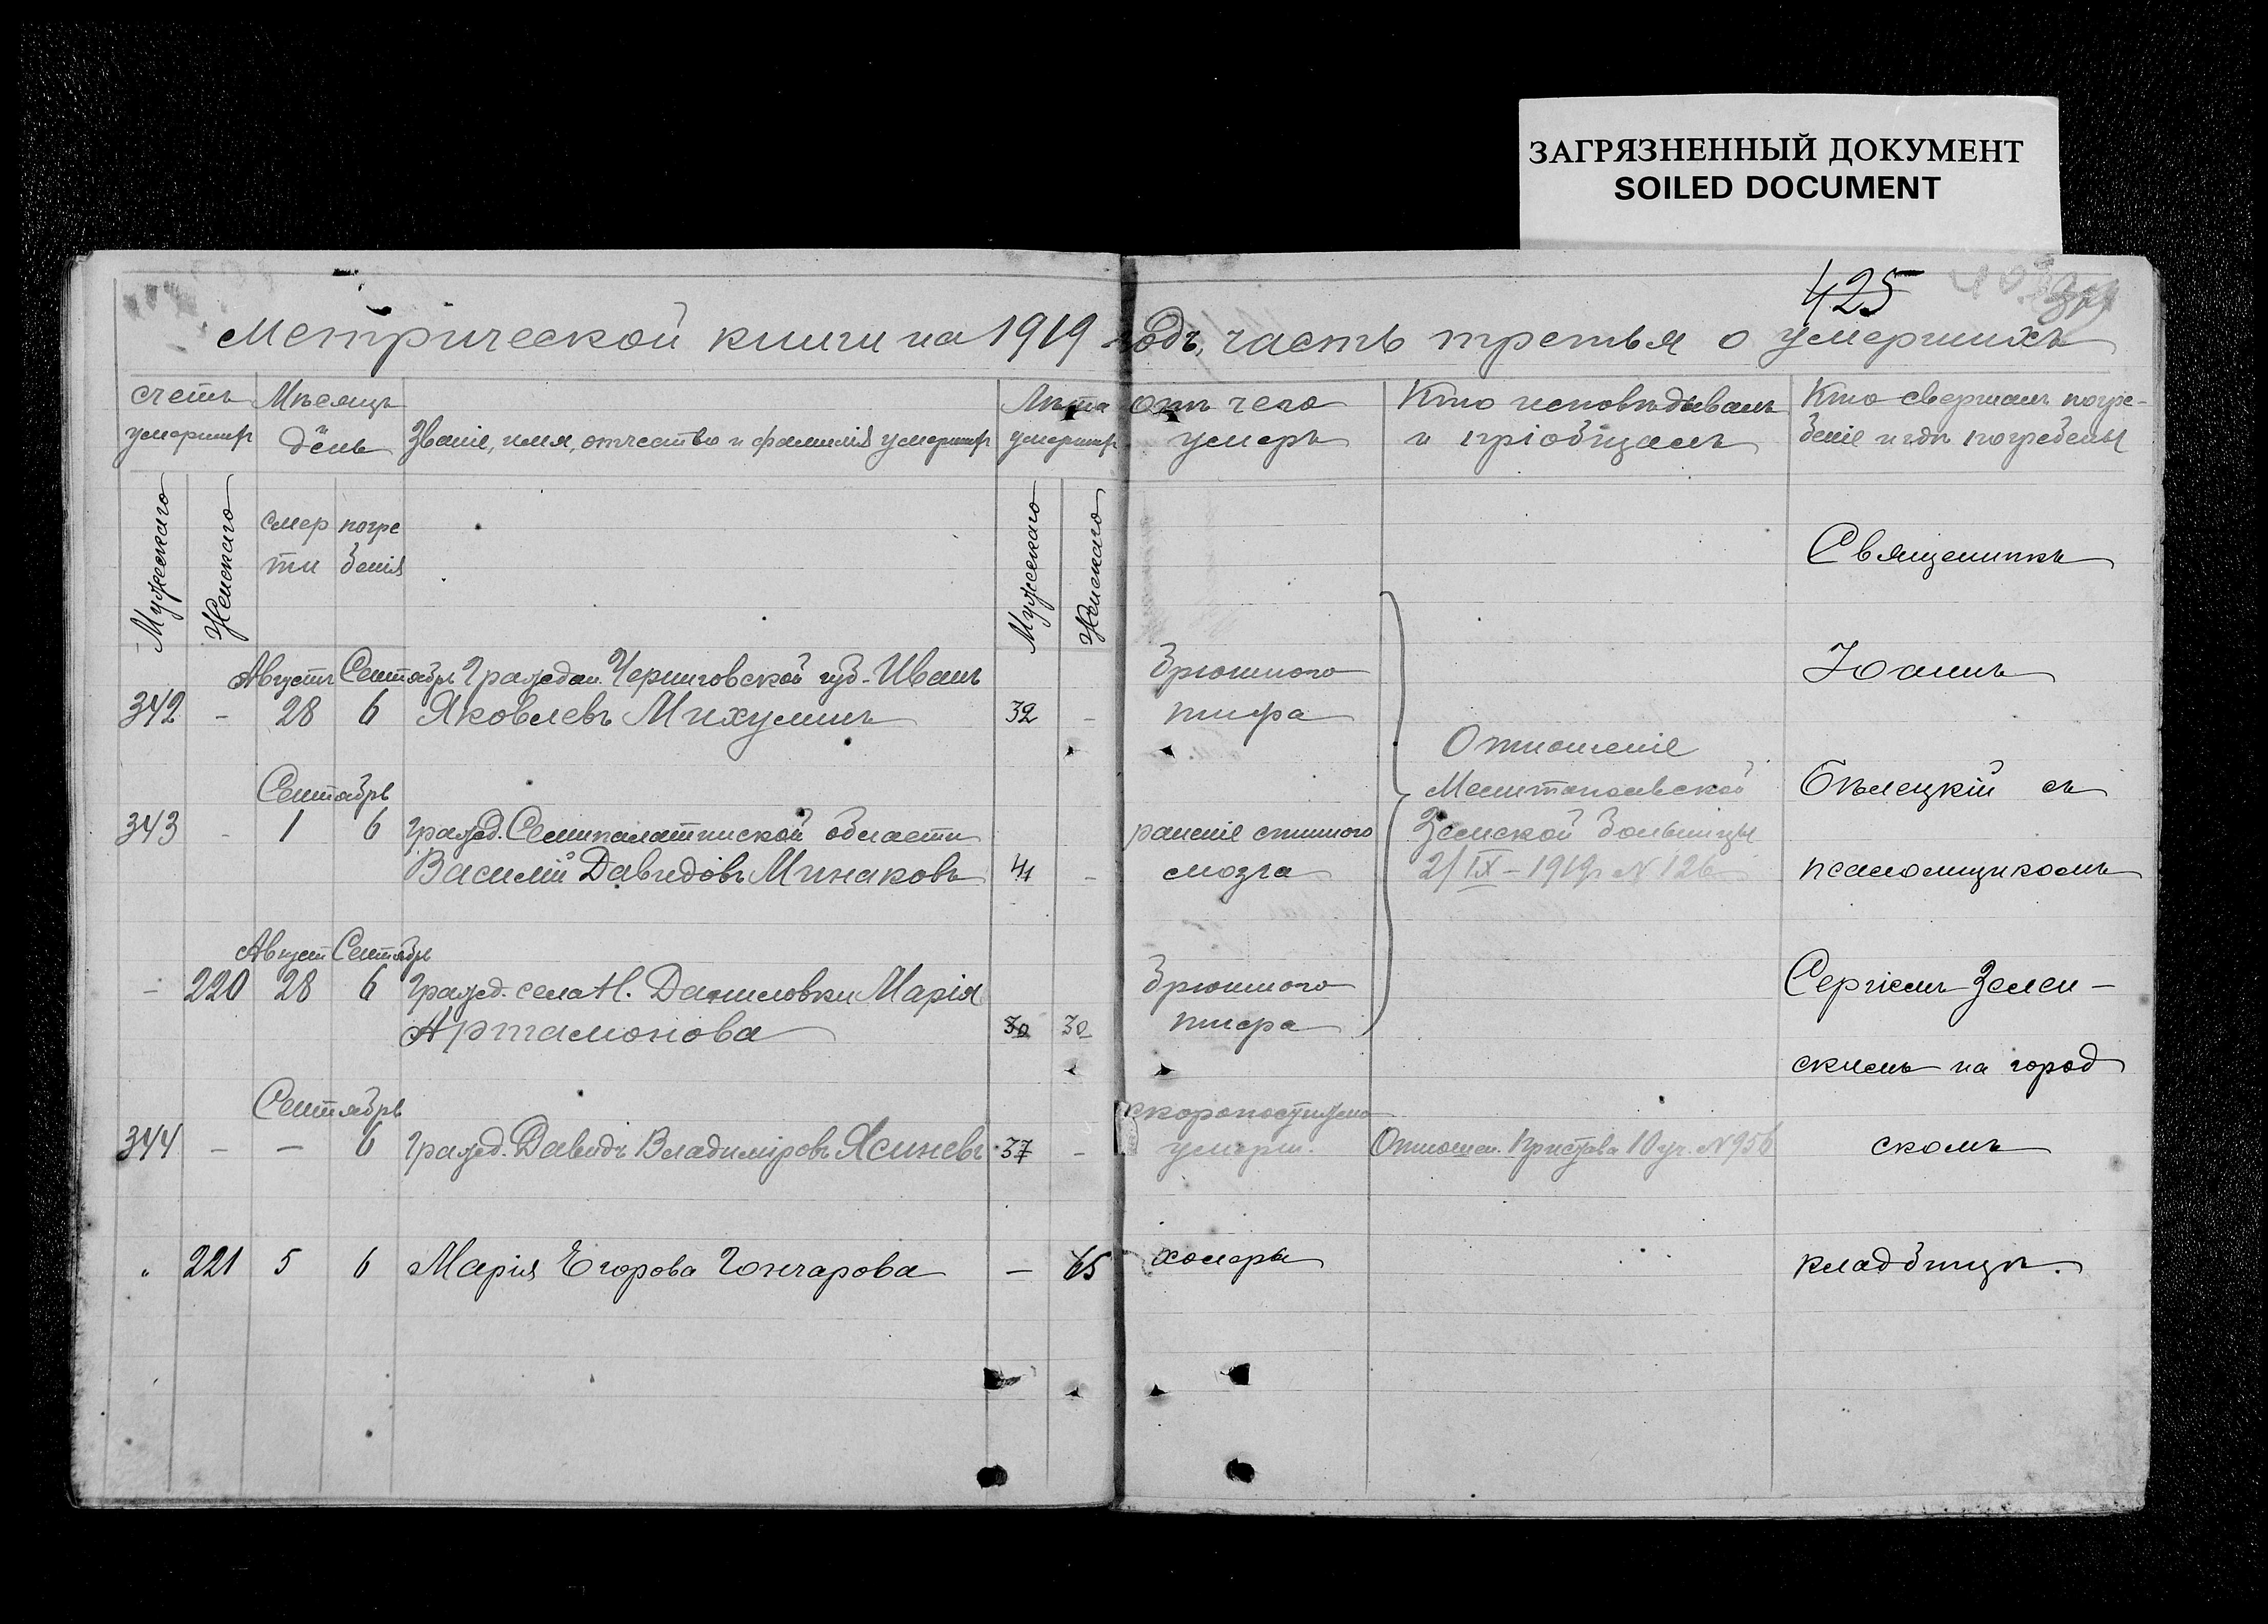 ЗАГРЯЗНЕННЫЙ ДОКУМЕНТ
SOILED DOCUMENT
425
Метрической книги на 1919 годъ, часть третья о умершихъ
счетъ умершир
Мѣсяцъ день
Званіе, имя, отчество и фамилія умершир
Лѣта умершир
отъ чего умеръ
Кто исповѣдывалъ и пріобщалъ
Кто свершалъ погре-
беніе и гдѣ погребены
Мужескаго
Женскаго
смер
ти
погре
бенія
Мужескаго
Женскаго
Священникъ
Августъ Сентябрь Граждан. Черниговской губ. Иванъ
Брюшного
Іоаннъ
342 - 28 6 Яковлевъ Михулинъ 32 -
тифа
Отношеніе
Сентябрь
Мелитопольской
Бѣлецкій съ
343 - 1 6 гражд. Семипалатинской области
раненіе спинного
Земской больницы
Василій Давидовъ Минаковъ 41 -
мозга
2/IX - 1919 г. N 126
псаломщикомъ
Август Сентябрь
- 220 28 6 Гражд. села Н. Даниловки Марія
Брюшного
Сергіемъ Зелен-
Артамонова 30 30
тифа
скимъ на город
Сентябрь
скоропостижно
344 - - 6 Гражд. Давидъ Владиміровъ Ясиневъ 37 -
умерш.
Отношен. Пристава 10 уч. N 956
скомъ
" 221 5 6 Марія Егорова Гончарова - 65
холеры
кладбищѣ.